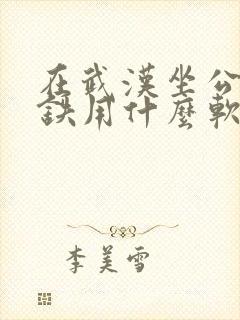 在武漢坐公
鐵用什麼軟
李美雪